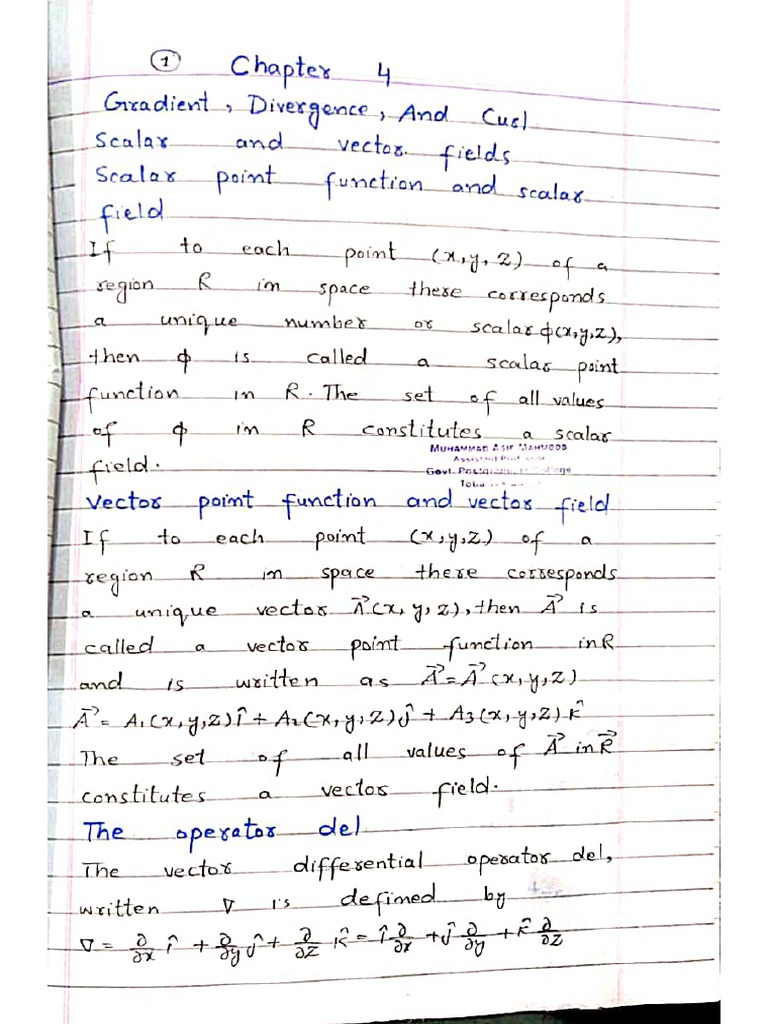 ① Chapter 4
Gradient, Divergence, And Curl
Scalar and vector fields
Scalar point function and scalar
field
If to each point (x,y,z) of a
region R in space there corresponds
a unique number or scalar ϕ(x,y,z),
then ϕ is called a scalar point
function in R. The set of all values
of ϕ in R constitutes a scalar
MUHAMMAD ASIF MAHMOOD
field.
Govt.
Vector point function and vector field
If to each point (x,y,z) of a
region R in space there corresponds
a unique vector A⃗(x,y,z), then A⃗ is
called a vector point function in R
and is written as A⃗ = A⃗(x,y,z)
A⃗ = A₁(x,y,z)î + A₂(x,y,z)ĵ + A₃(x,y,z)k̂
The set of all values of A⃗ in R⃗
constitutes a vector field.
The operator del
The vector differential operator del,
written ∇ is defined by
∇ = ∂/∂x î + ∂/∂y ĵ + ∂/∂z k̂ = î ∂/∂x + ĵ ∂/∂y + k̂ ∂/∂z